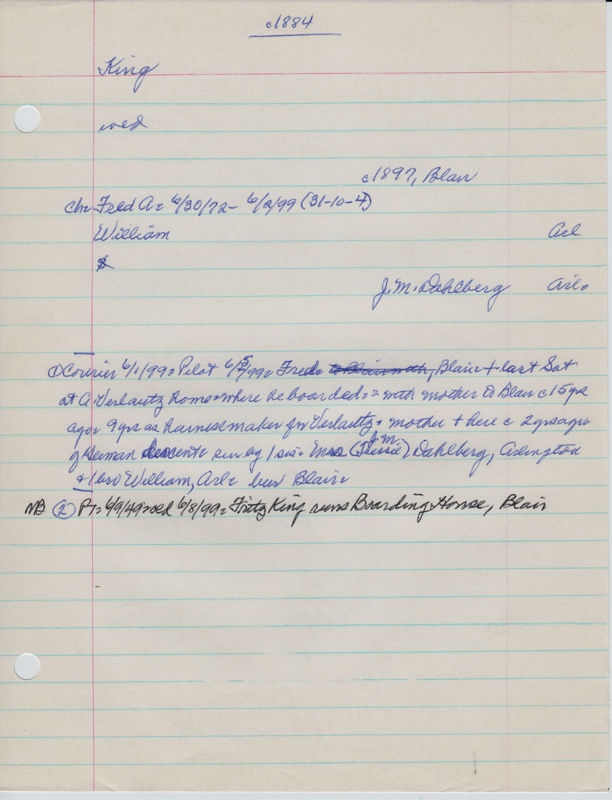 c1884
King
wed
c1897, Blair
ch= Fred A= 6/30/72- 6/3/99 (31-10-4)
William Arl
J. M. Dahlberg Arl=
① Courier 6/1/99= Pilot 6/5/99= Fred= Blair + last Sat
at A Verlautz home= where he boarded= with mother to Blair c15 yrs
ago= 9 yrs as harnessmaker for Verlautz= mother + here c 2 yrs ago
of German descent= surv by 1 sis= Mrs J.M. (Flessie) Dahlberg, Arlington
+ 1 bro William, Arl= bur Blair=
NB ② P= 6/9/49= ed 6/8/99= Fritz King runs Boarding House, Blair